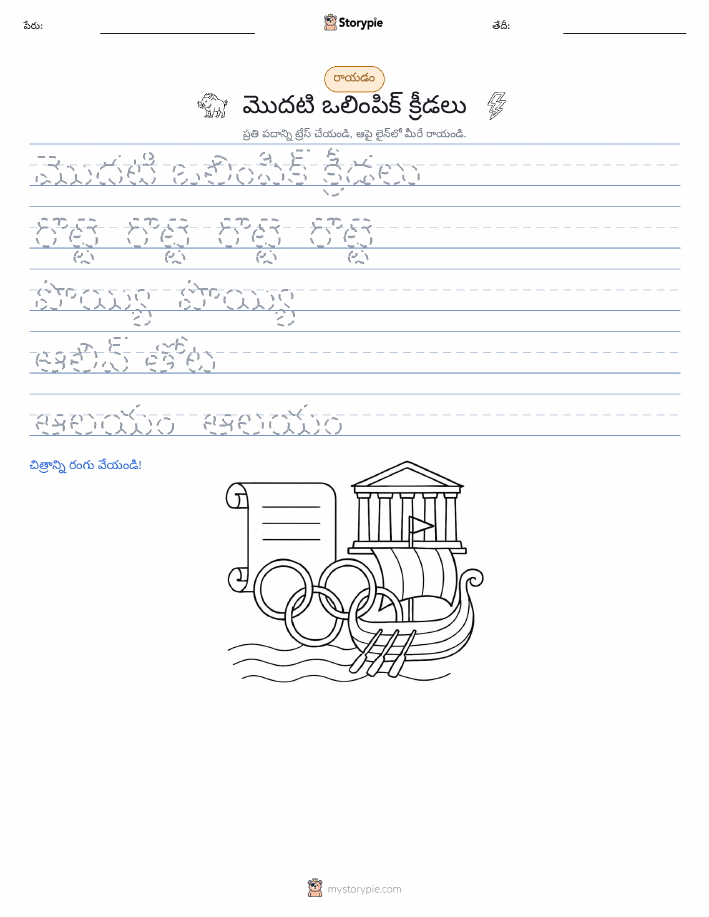 పేరు:
Storypie
తేదీ:
రాయడం
మొదటి ఒలింపిక్ క్రీడలు
ప్రతి పదాన్ని ట్రేస్ చేయండి, ఆపై లైన్‌లో మీరే రాయండి.
మొదటి ఒలింపిక్ క్రీడలు
రొట్టె రొట్టె రొట్టె రొట్టె
పొయ్యి పొయ్యి
ఆలివ్ తోట
ఆలయం ఆలయం
చిత్రాన్ని రంగు వేయండి!
mystorypie.com